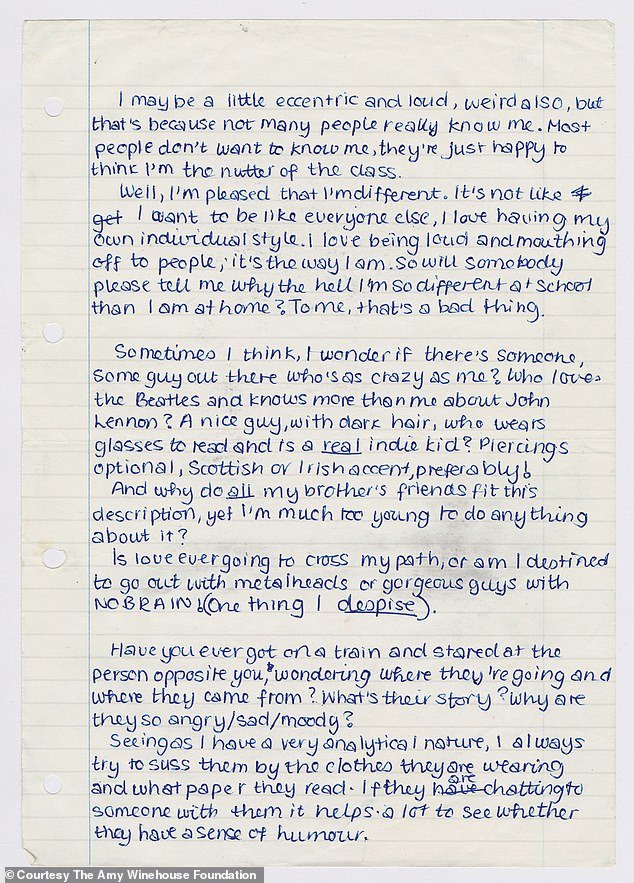 I may be a little eccentric and loud, weird also, but
that's because not many people really know me. Most
people don't want to know me, they're just happy to
think I'm the nutter of the class.
Well, I'm pleased that I'm different. It's not like I
get I want to be like everyone else, I love having my
own individual style. I love being loud and mouthing
off to people, it's the way I am. So will somebody
please tell me why the hell I'm so different at school
than I am at home? To me, that's a bad thing.
Sometimes I think, I wonder if there's someone,
some guy out there who's as crazy as me? Who loves
the Beatles and knows more than me about John
Lennon? A nice guy, with dark hair, who wears
glasses to read and is a real indie kid? Piercings
optional, Scottish or Irish accent, preferably!
And why do all my brother's friends fit this
description, yet I'm much too young to do anything
about it?
Is love ever going to cross my path, or am I destined
to go out with metalheads or gorgeous guys with
NO BRAIN! (One thing I despise).
Have you ever got on a train and stared at the
person opposite you, wondering where they're going and
where they came from? What's their story? Why are
they so angry/sad/moody?
Seeing as I have a very analytical nature, I always
try to suss them by the clothes they are wearing
and what paper they read. If they have are chatting to
someone with them it helps a lot to see whether
they have a sense of humour.
©Courtesy The Amy Winehouse Foundation